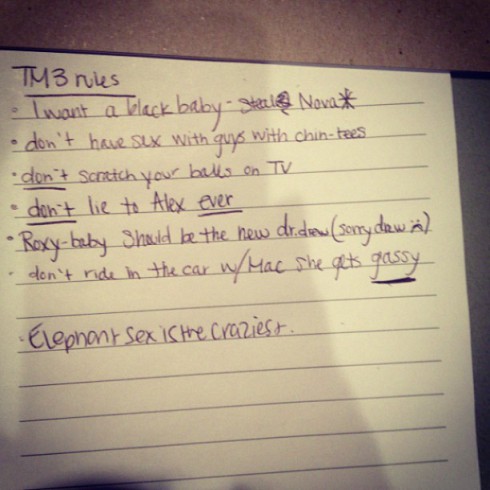 TM3 rules
• I want a black baby - steal Nova*
• don't have sex with guys with chin-tees
• don't scratch your balls on TV
• don't lie to Alex ever
• Roxy-baby should be the new dr. drew (sorry drew :().
• don't ride in the car w/Mac she gets gassy
• Elephant sex is the craziest.